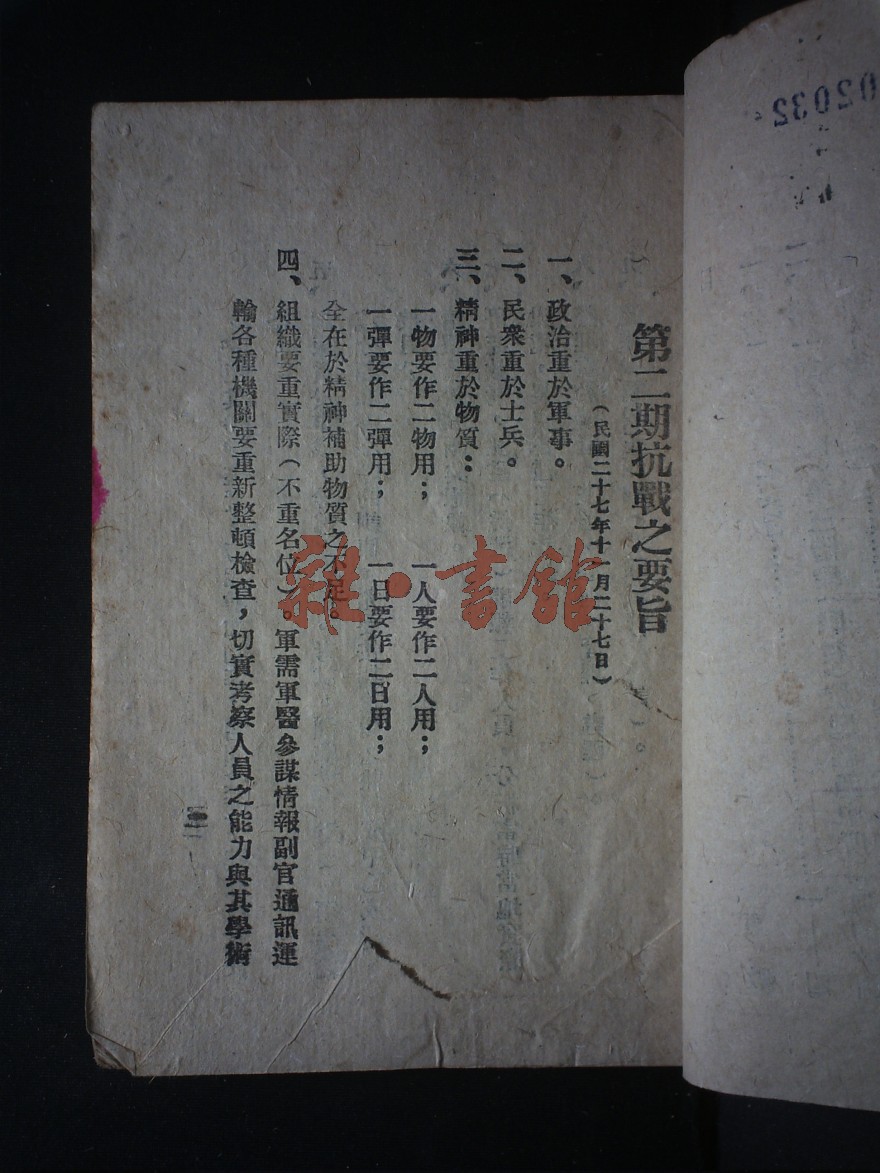 第二期抗戰之要旨
（民國二十七年十一月二十七日）
一、政治重於軍事。
二、民衆重於士兵。
三、精神重於物質：
一物要作二物用；　一人要作二人用；
一彈要作二彈用；　一日要作二日用；
全在於精神補助物質之不足。
四、組織要重實際（不重名位）。軍需軍醫參謀情報副官通訊運
輸各種機關要重新整頓檢查，切實考察人員之能力與其學術
雜·書館